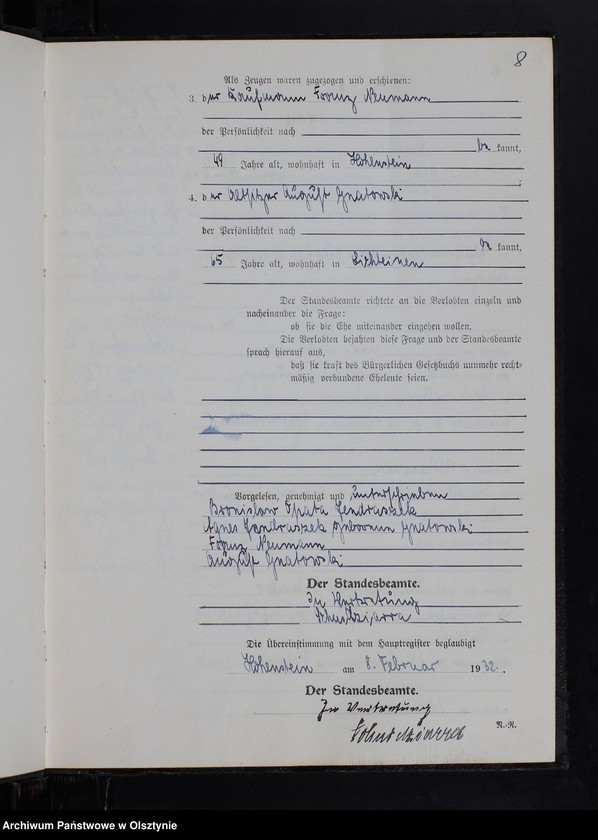 8
Als Zeugen waren zugezogen und erschienen:
3. der Kaufmann Franz Neumann
der Persönlichkeit nach
bekannt,
49 Jahre alt, wohnhaft in Hohenstein
4. der Altsitzer August Gnatowski
der Persönlichkeit nach
bekannt,
65 Jahre alt, wohnhaft in Lichteinen
Der Standesbeamte richtete an die Verlobten einzeln und
nacheinander die Frage:
ob sie die Ehe miteinander eingehen wollen.
Die Verlobten bejahten diese Frage und der Standesbeamte
sprach hierauf aus,
daß sie kraft des Bürgerlichen Gesetzbuchs nunmehr recht-
mäßig verbundene Eheleute seien.
Vorgelesen, genehmigt und unterschrieben
Bronislaw Jendraszek
Agnes Jendraszek geborene Gnatowski
Franz Neumann
August Gnatowski
Der Standesbeamte.
In Vertretung
Die Übereinstimmung mit dem Hauptregister beglaubigt
Hohenstein am 8. Februar 1932.
Der Standesbeamte.
In Vertretung
N.-R.
Archiwum Państwowe w Olsztynie